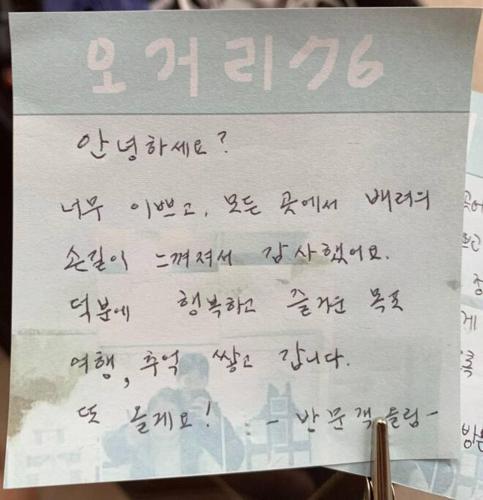 오거리76
안녕하세요?
너무 이쁘고, 모든 곳에서 배려의
손길이 느껴져서 감사했어요.
덕분에 행복하고 즐거운 목포
여행, 추억 쌓고 갑니다.
또 올게요! - 반문객 드림 -